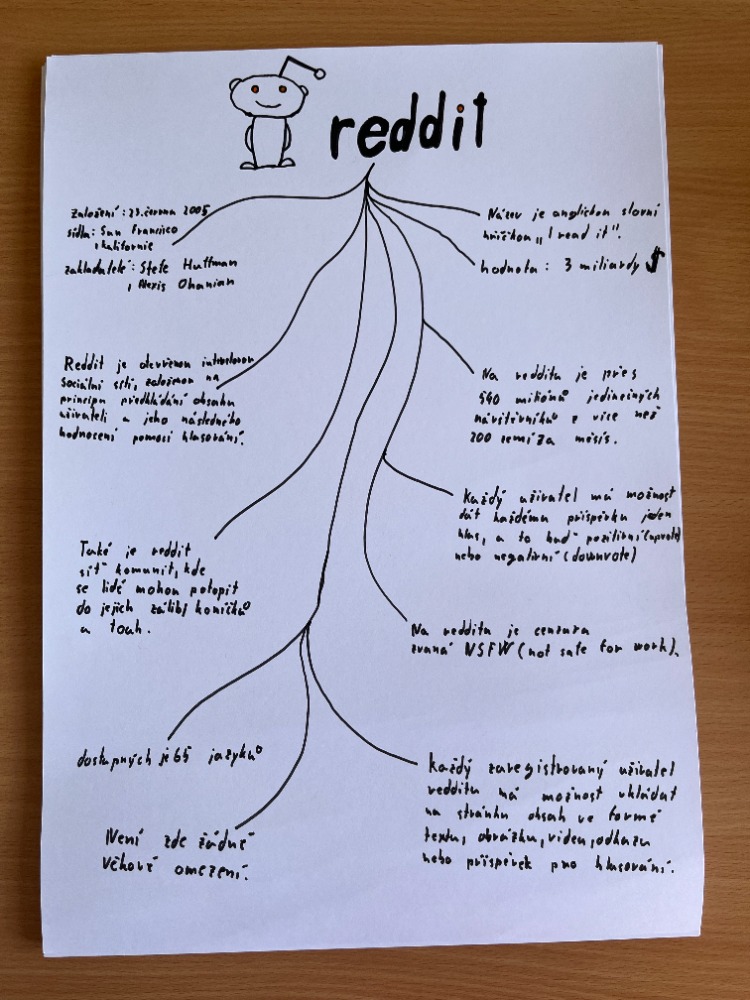 reddit
založení: 23. června 2005
sídla: San Francisco
, kalifornie
zakladatelé: Stefe Huffman
, Alexis Ohanian
Název je anglickou slovní
hříčkou „I read it".
hodnota: 3 miliardy $
Reddit je otevřenou
sociální sítí, založenou na
principu předkládání obsahu
uživateli a jeho následného
hodnocení pomocí hlasování.
Na redditu je přes
540 miliónů jedinečných
návštěvníků z více než
200 zemí za měsís.
Každý uživatel má možnost
dát každému příspěvku jeden
hlas, a to buď pozitivní (upvote)
nebo negativní (downvote)
Také je reddit
síť komunit, kde
se lidé mohou potopit
do jejich zálib, koníčků
a touh.
Na redditu je cenzura
zvaná NSFW (not safe for work).
dostupných je 65 jazyků
Není zde žádné
věkové omezení.
každý zaregistrovaný uživatel
redditu má možnost vkládat
na stránku obsah ve formě
textu, obrázku, videu, odkazu
nebo příspěvek pro hlasování.